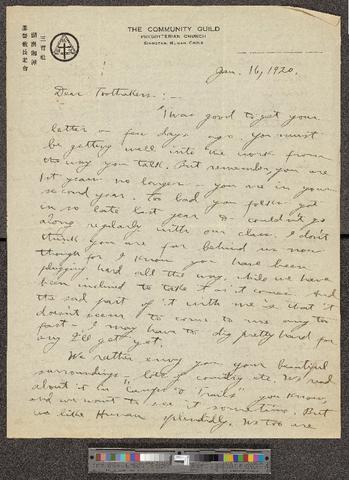 三育社
湖南湘潭
基督教長老會
THE COMMUNITY GUILD
PRESBYTERIAN CHURCH
SIANGTAN, HUNAN, CHINA
Jan. 16, 1920.
Dear Toothakers: -
'Twas good to get your
letter a few days ago. You must
be getting well into the work from
the way you talk. But remember you are
1st year no longer - you are in your
second year. Too bad you folks got
in so late last year & couldn't go
along regularly with our class. I don't
think you are far behind us now
though for I know you have been
plugging hard all the way while we have
been inclined to take it as it comes. And
the sad part of it with me is that it
doesn't seem to come to me any too
fast - I may have to dig pretty hard for
any I'll get yet.
We rather envy you your beautiful
surroundings - lots of country etc. We read
about it in "Camps & Trails" you know,
and we want to see it sometime. But
we like Hunan splendidly. We too are